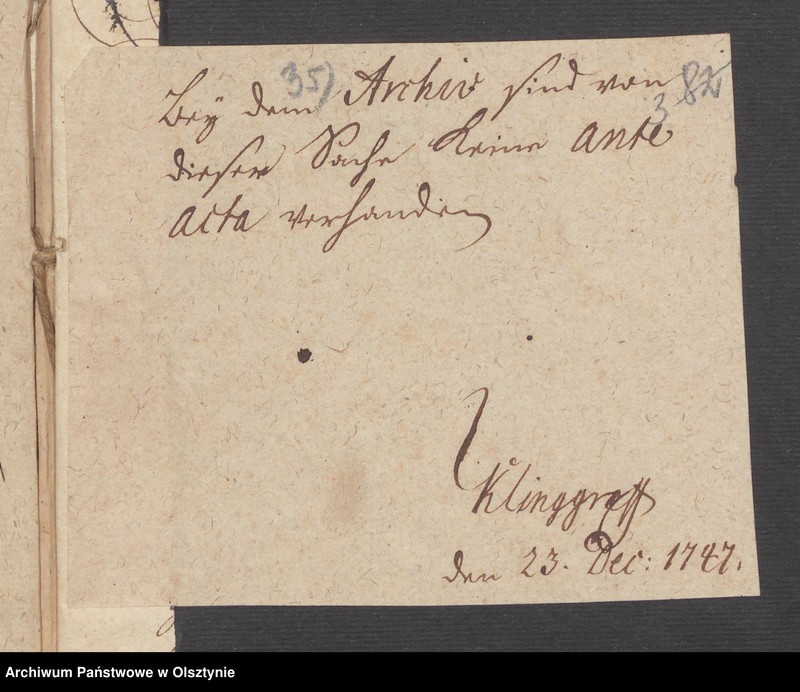 35)
Bey dem Archiv sind von
3 82
dieser Sache Keine ante
acta vorhanden
Klinggraff
den 23. Dec: 1747.
Archiwum Państwowe w Olsztynie